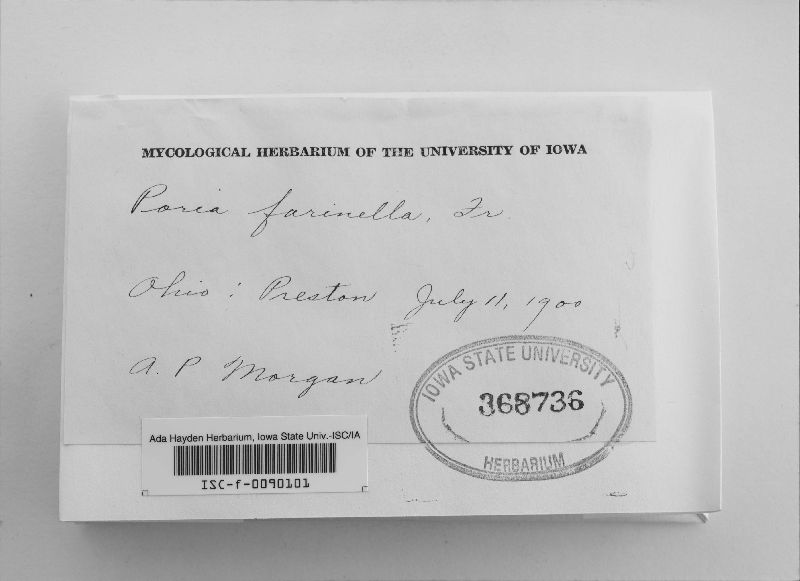 MYCOLOGICAL HERBARIUM OF THE UNIVERSITY OF IOWA
Poria farinella, Fr.
Ohio : Preston July 11, 1900
A. P. Morgan
IOWA STATE UNIVERSITY
368736
HERBARIUM
Ada Hayden Herbarium, Iowa State Univ.-ISC/IA
ISC-f-0090101